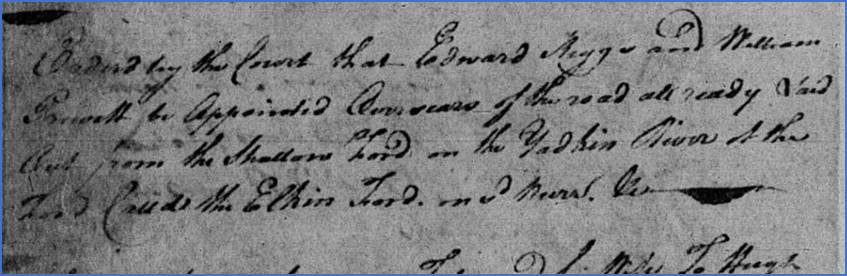 Orderd by the Court that Edward Riggs and William
Prewett be Appointed Oversears of the road all ready Laid
Out from the Shallow Ford on the Yadkin River at the
Ford Called the Elkin Ford on sd River &c
To Hugh